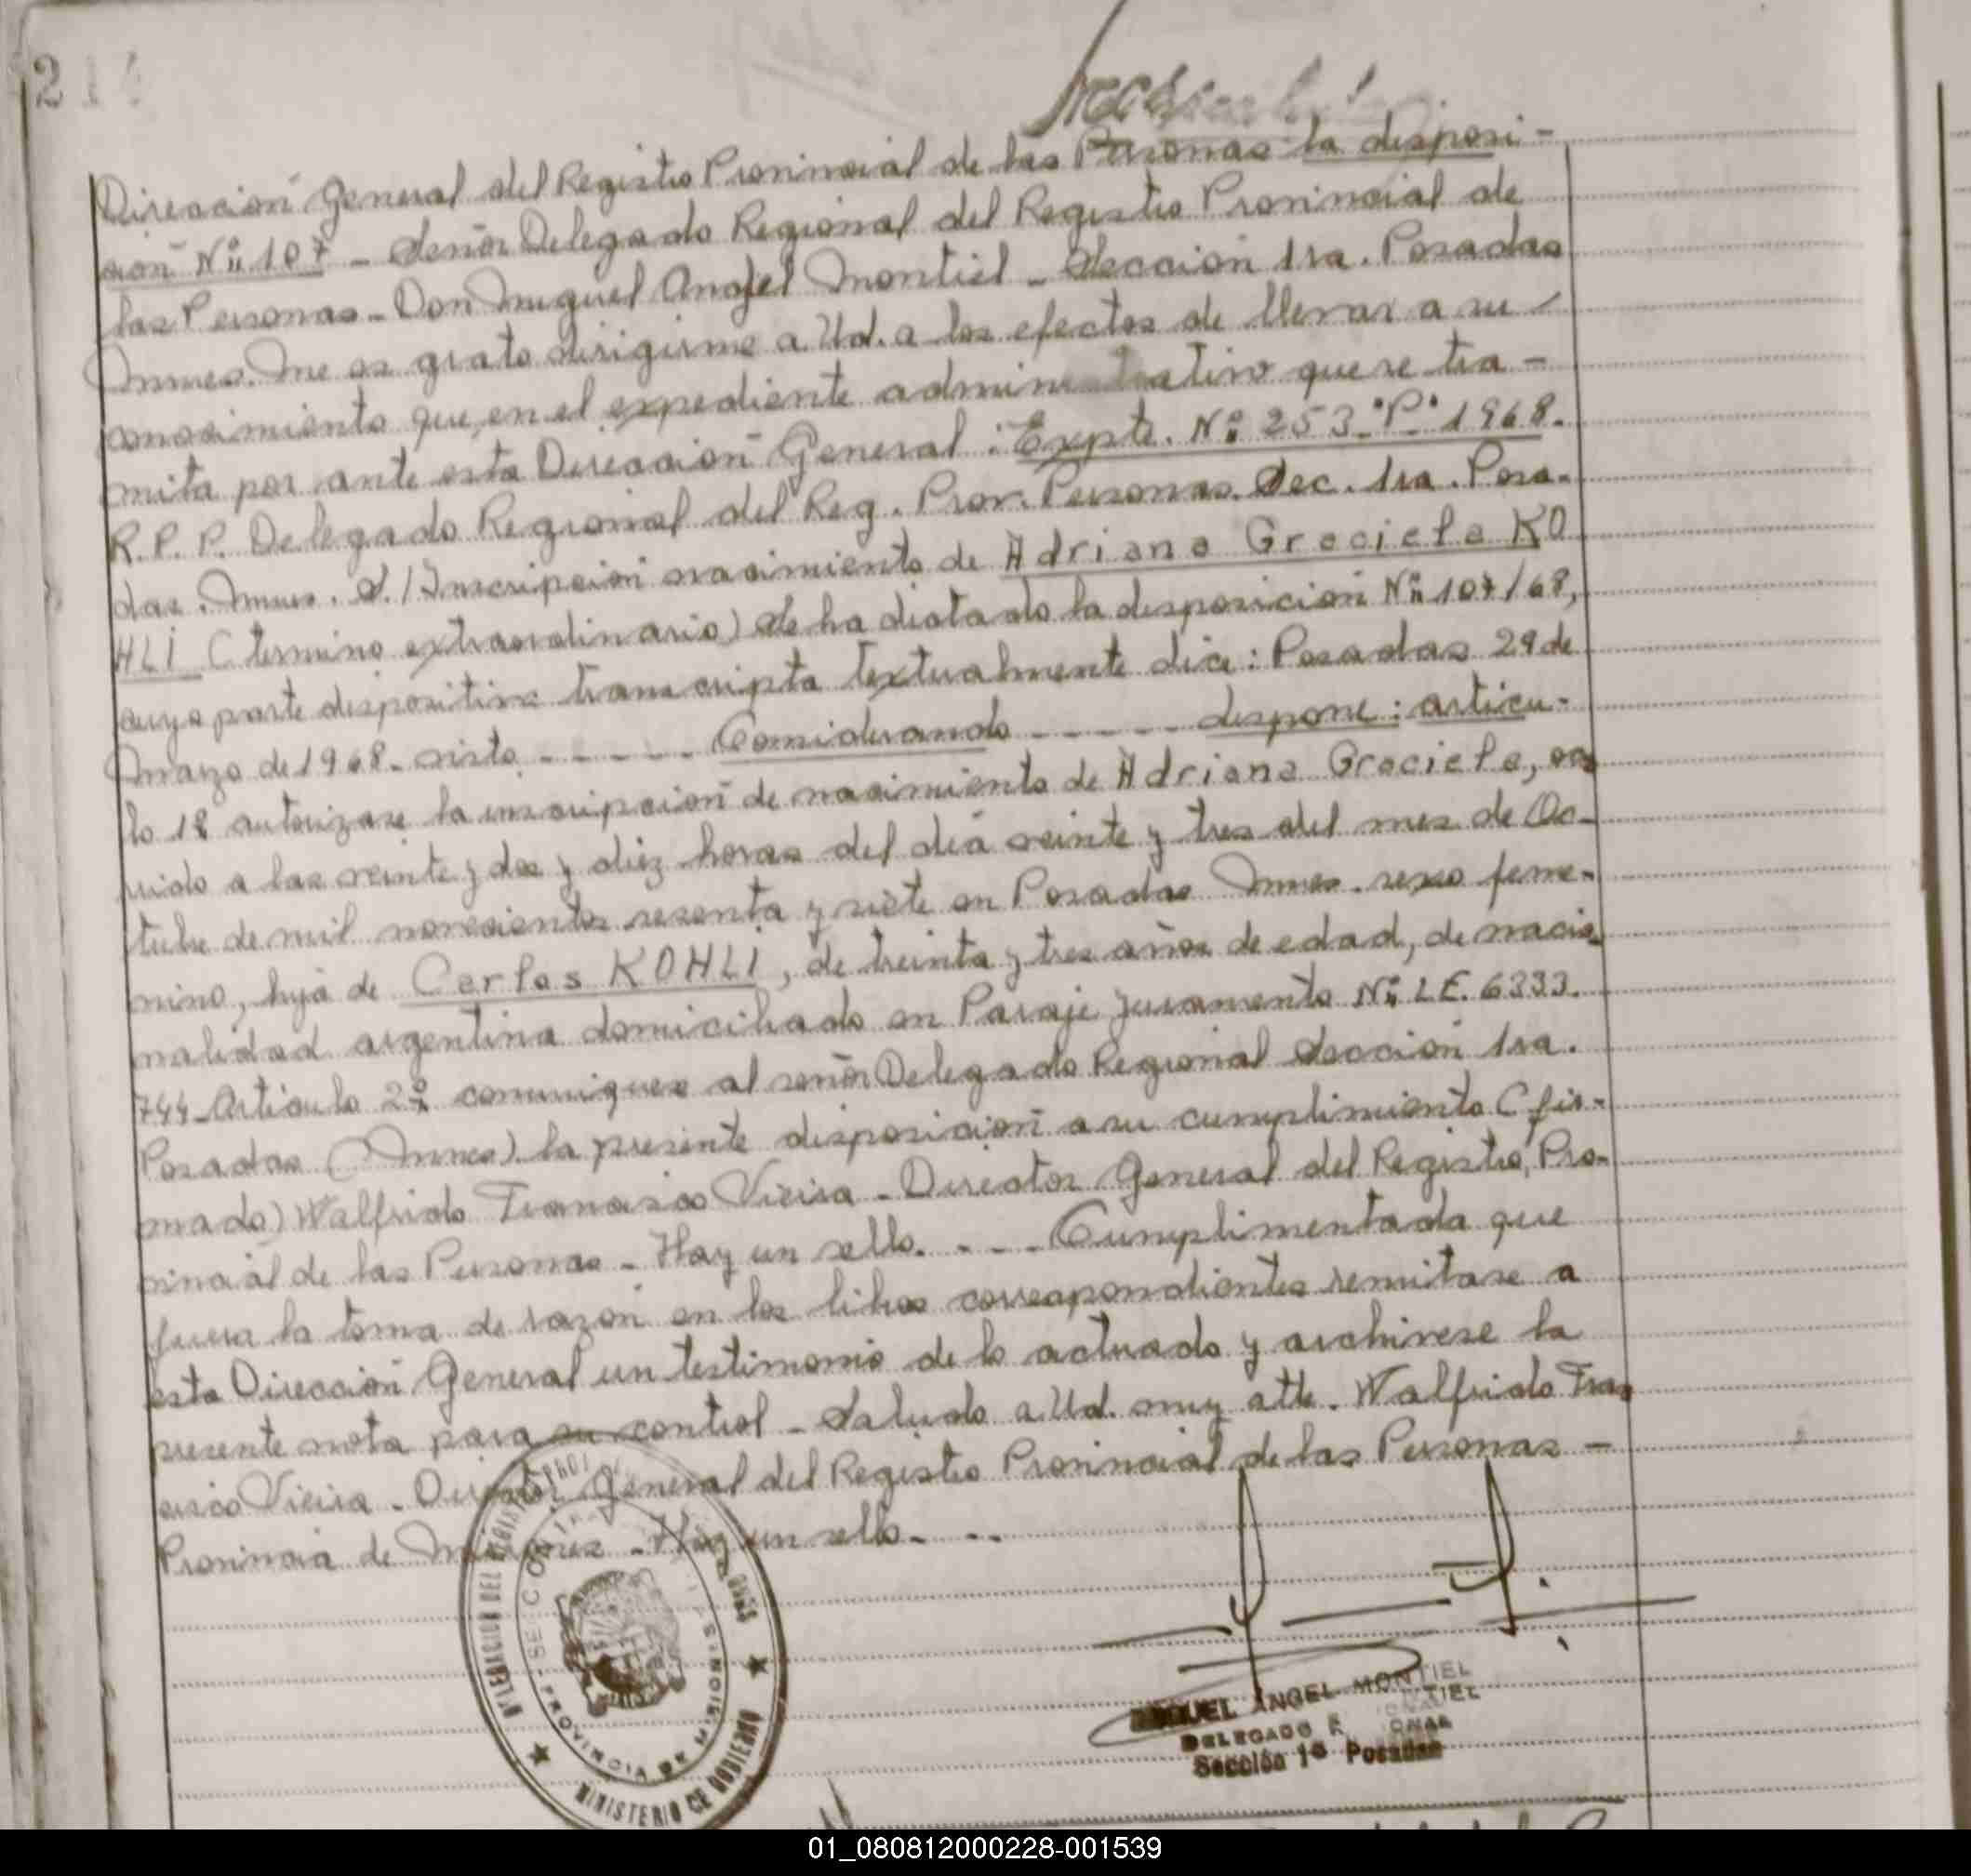 Direccion General del Registro Provincial de las Personas la disposi-
cion Nº 107 - Señor Delegado Regional del Registro Provincial de
las Personas - Don Miguel Angel Montiel - Seccion 1ra. Posadas
Mnes. Me es grato dirigirme a Ud. a los efectos de llevar a su
conocimiento que, en el expediente administrativo que se tra-
mita por ante esta Direccion General: Expte. Nº 253-"P"-1968.
R.P.P. Delegado Regional del Reg. Prov. Personas. Sec. 1ra. Posa-
das. Mnes. S./Inscripcion nacimiento de Adriana Graciela KO
HLI (termino extraordinario) se ha dictado la disposicion Nº 107/68,
cuya parte dispositiva transcripta textualmente dice: Posadas 29 de
Marzo de 1968- visto - - - - - Considerando - - - - - dispone: articu-
lo 1º autorizase la inscripcion de nacimiento de Adriana Graciela, oc
rrido a las veinte y dos y diez horas del dia veinte y tres del mes de Oc-
tubre de mil novecientos sesenta y siete en Posadas Mnes. sexo feme-
nino, hija de Carlos KOHLI, de treinta y tres años de edad, de nacio
nalidad argentina domiciliado en Paraje Juramento Nº LE. 6333.
744- Articulo 2º comuniquese al señor Delegado Regional Seccion 1ra.
Posadas (Mnes). la presente disposicion a su cumplimiento (fir-
mado) Walfrido Francisco Vieira - Director General del Registro, Pro-
vincial de las Personas - Hay un sello. - - - Cumplimentada que
fuera la toma de razon en los libros correspondientes remitase a
esta Direccion General un testimonio de lo actuado y archivese la
presente nota para su control - Saludo a Ud. muy atte. Walfrido Fran
cisco Vieira - Director General del Registro Provincial de las Personas -
Provincia de Misiones - Hay un sello - - -
MINISTERIO DE GOBIERNO
PROVINCIA DE MISIONES
MIGUEL ANGEL MONTIEL
DELEGADO REGIONAL
Sección 1ª Posadas
01_080812000228-001539